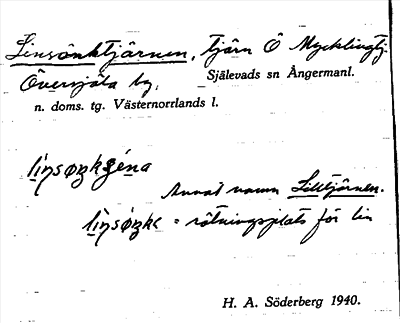 Linsänktjärnen, tjärn Ö Mycklingtj.
Översjäla by, Själevads sn Ångermanl.
n. doms. tg. Västernorrlands l.
Annat namn Lilltjärnen.
= rötningsplats för lin
H. A. Söderberg 1940.